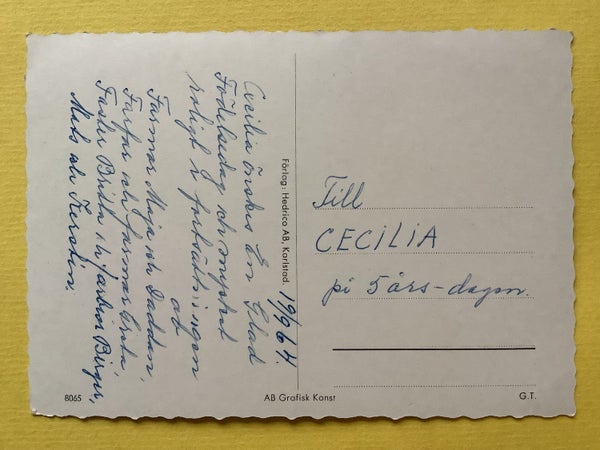 Cecilia önskes En Glad
Födelsedag och mycket
roligt i fortsättningen
av
Farmor Maja och Daddan,
Farfar och farmor Greta,
Faster Britta och farbror Birger,
Mats och Kerstin.
Förlag: Hedrico AB, Karlstad.
19/9 64.
Till
CECILIA
på 5 års-dagen.
8065
AB Grafisk Konst
G.T.